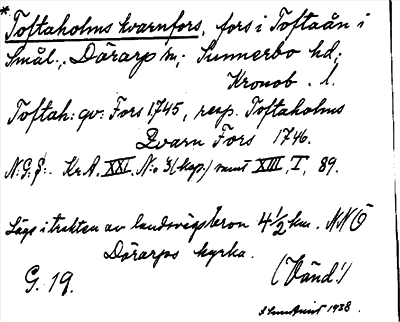 *Toftaholms kvarnfors, fors i Toftaån i
Smål., Dörarp sn; Sunnerbo hd;
Kronob. l.
Toftah: qv: Fors 1745, resp. Toftaholms
Qvarn Fors 1746.
N:G:§:. Kr.A. XXI. N:o 3 (kop.) samt XIII, I, 89.
Lägs i trakten av landsvägsbron 4½ km. NNÖ
Dörarps kyrka.
G. 19. (Vänd!)
1938.